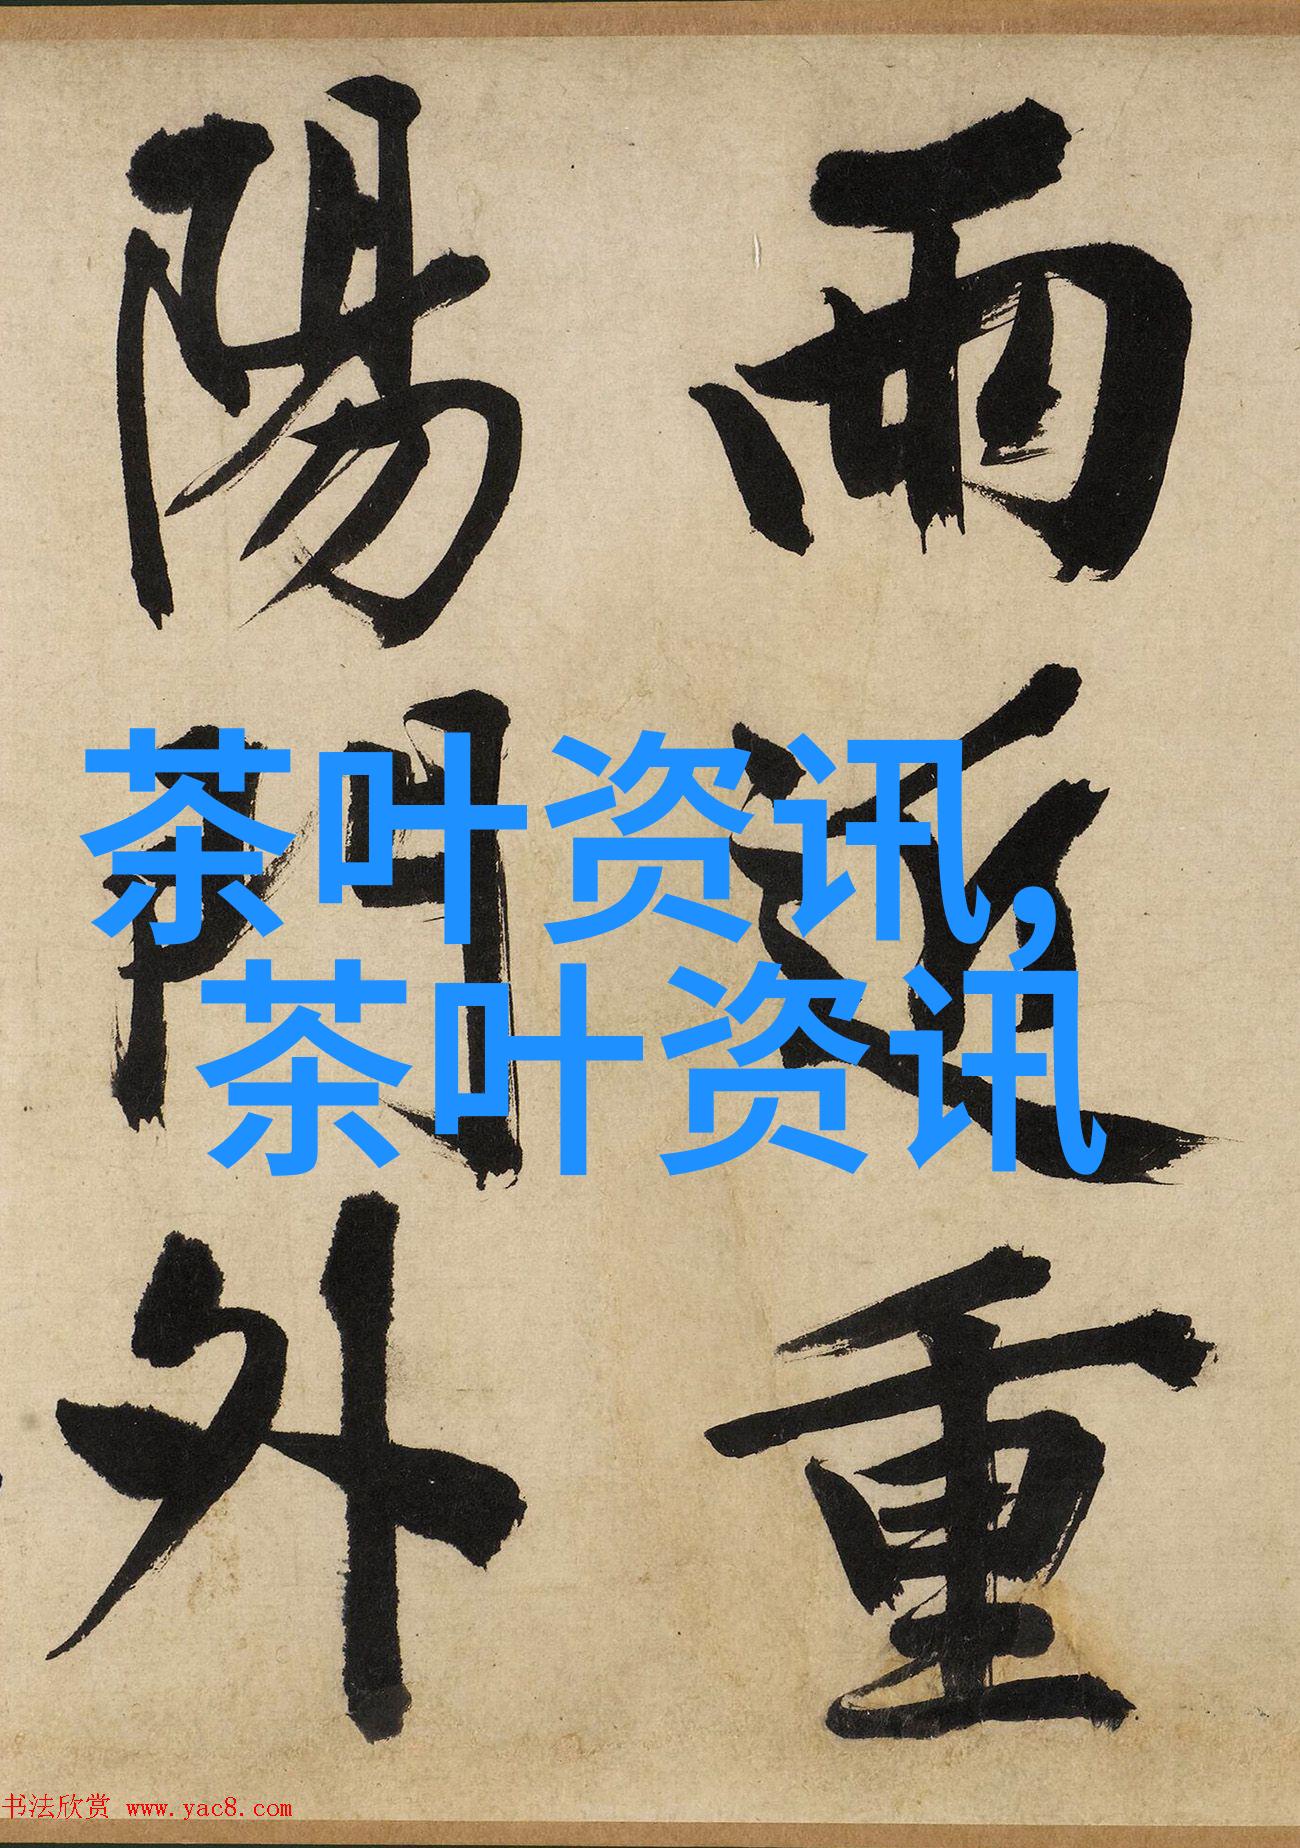 雨近重
陽門外
茶叶资讯,
茶叶资讯
书法欣赏 www.yac8.com